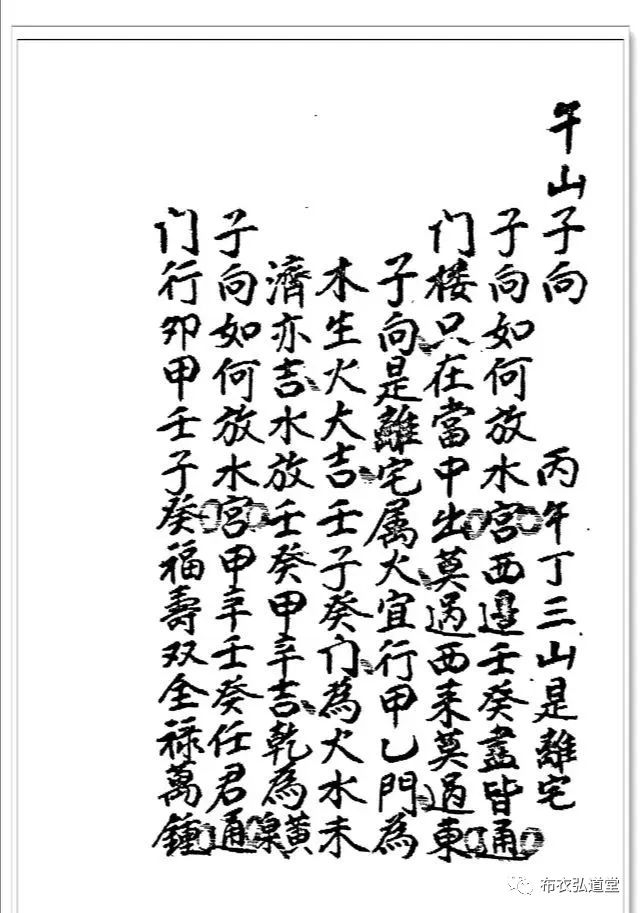 午山子向 丙午丁三山是離宅
子向如何放水宮西邉壬癸盡皆通
门楼只在當中出莫過西来莫過東
子向是離宅属火宜行甲乙門為
木生火大吉壬子癸门為火水未
濟亦吉水放壬癸甲辛吉乾為黄泉
子向如何放水宮甲辛壬癸任君通
门行卯甲壬子癸福壽双全禄萬鍾
布衣弘道堂